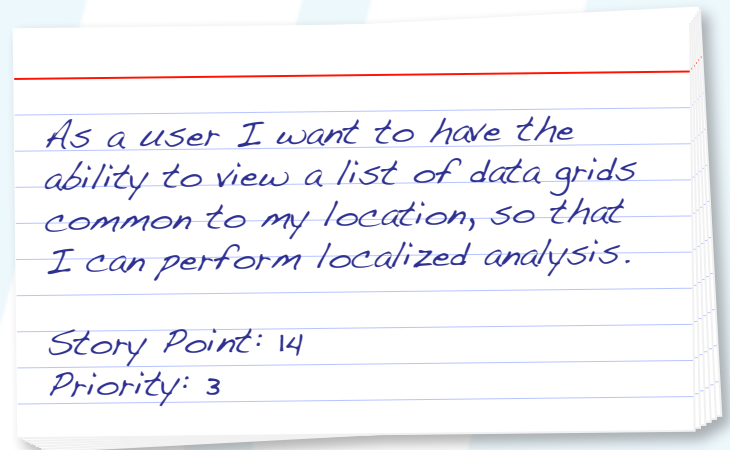 As a user I want to have the
ability to view a list of data grids
common to my location, so that
I can perform localized analysis.
Story Point: 14
Priority: 3